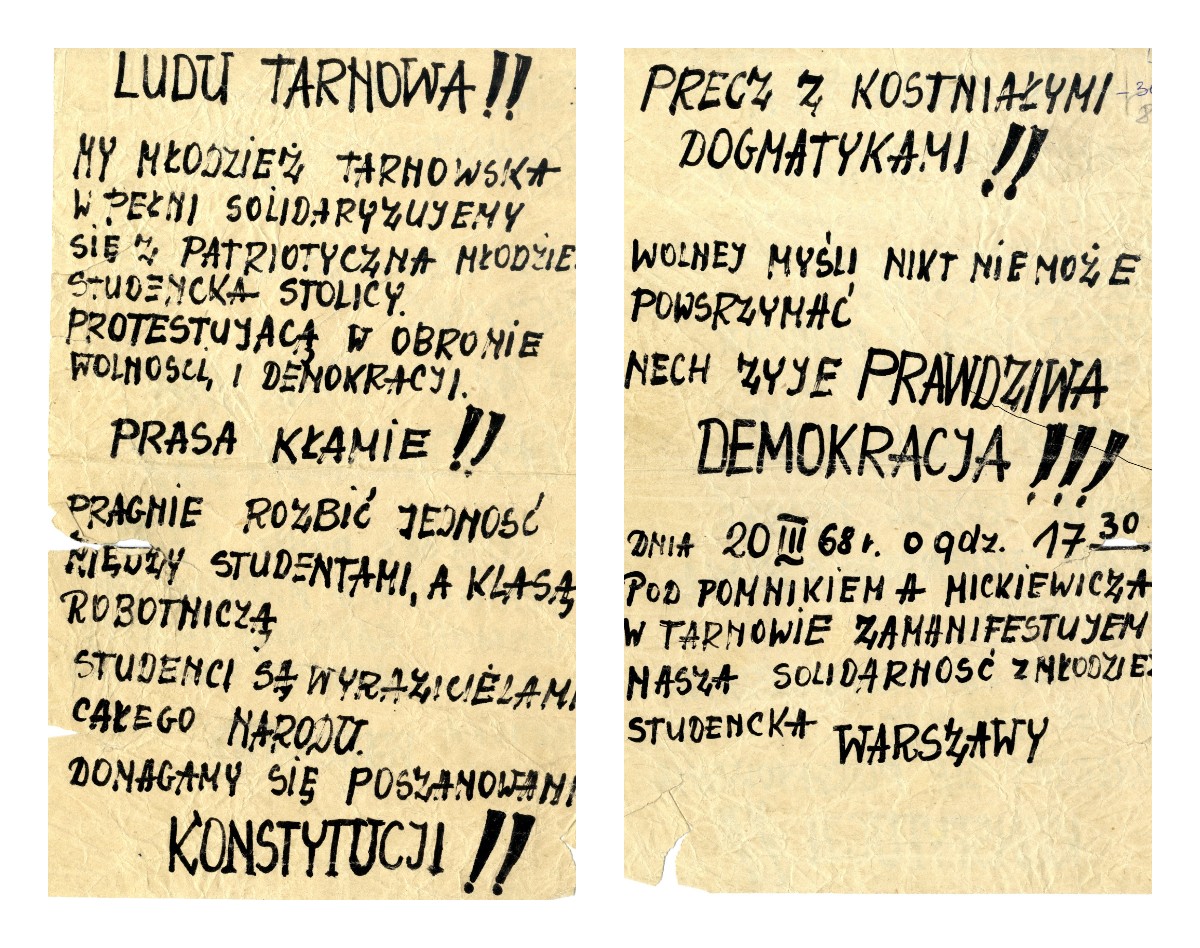 LUDU TARNOWA!!
MY MŁODZIEŻ TARNOWSKA
W PEŁNI SOLIDARYZUJEMY
SIĘ Z PATRIOTYCZNA MŁODZIE
STUDENCKA STOLICY.
PROTESTUJACĄ W OBRONIE
WOLNOSCI, I DEMOKRACJI.
PRASA KŁAMIE!!
PRAGNIE ROZBIĆ JEJNOŚĆ
MIĘDZY STUDENTAMI, A KLASĄ
ROBOTNICZĄ
STUDENCI SĄ WYRAZICIELAMI
CAŁEGO NARODU.
DOMAGAMY SIĘ POSZANOWANI
KONSTYTUCJI!!
PRECZ Z KOSTNIAŁYMI
DOGMATYKAMI!!
WOLNEJ MYŚLI NIKT NIE MOŻE
POWSRZYMAĆ
NECH ZYJE PRAWDZIWA
DEMOKRACJA!!!
DNIA 20 III 68 r. o godz. 17 30
POD POMNIKIEM A MICKIEWICZA
W TARNOWIE ZAMANIFESTUJEM
NASZA SOLIDARNOŚĆ Z MŁODZIEŻ
STUDENCKA WARSZAWY